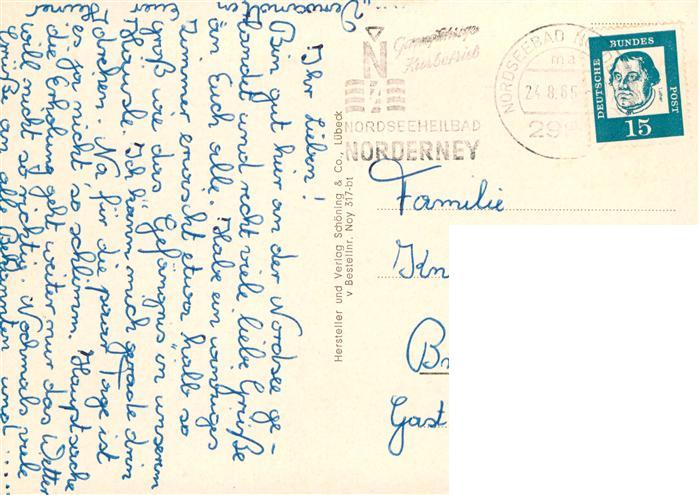 Ihr Lieben!
Bin gut hier an der Nordsee ge-
landet und recht viele liebe Grüße
an Euch alle. Habe ein winziges
Zimmer erwischt etwa halb so
groß wie das Gefängnis in unserem
Häusle. Ich kann mich gerade drin
drehen. Na für die paar Tage ist
es ja nicht so schlimm. Hauptsache
die Erholung geht weiter nur das Wetter
will nicht so richtig. Nochmals viele
Grüße an alle Bekannten und ....
Verwandten
Euer
Hersteller und Verlag Schöning & Co., Lübeck
v Bestellnr. Noy 317-bt
Ganzjähriger
Kurbetrieb
N
NORDSEEHEILBAD
NORDERNEY
NORDSEEBAD N
24.8.65
DEUTSCHE BUNDES POST
15
Familie
Kn
B
Gast